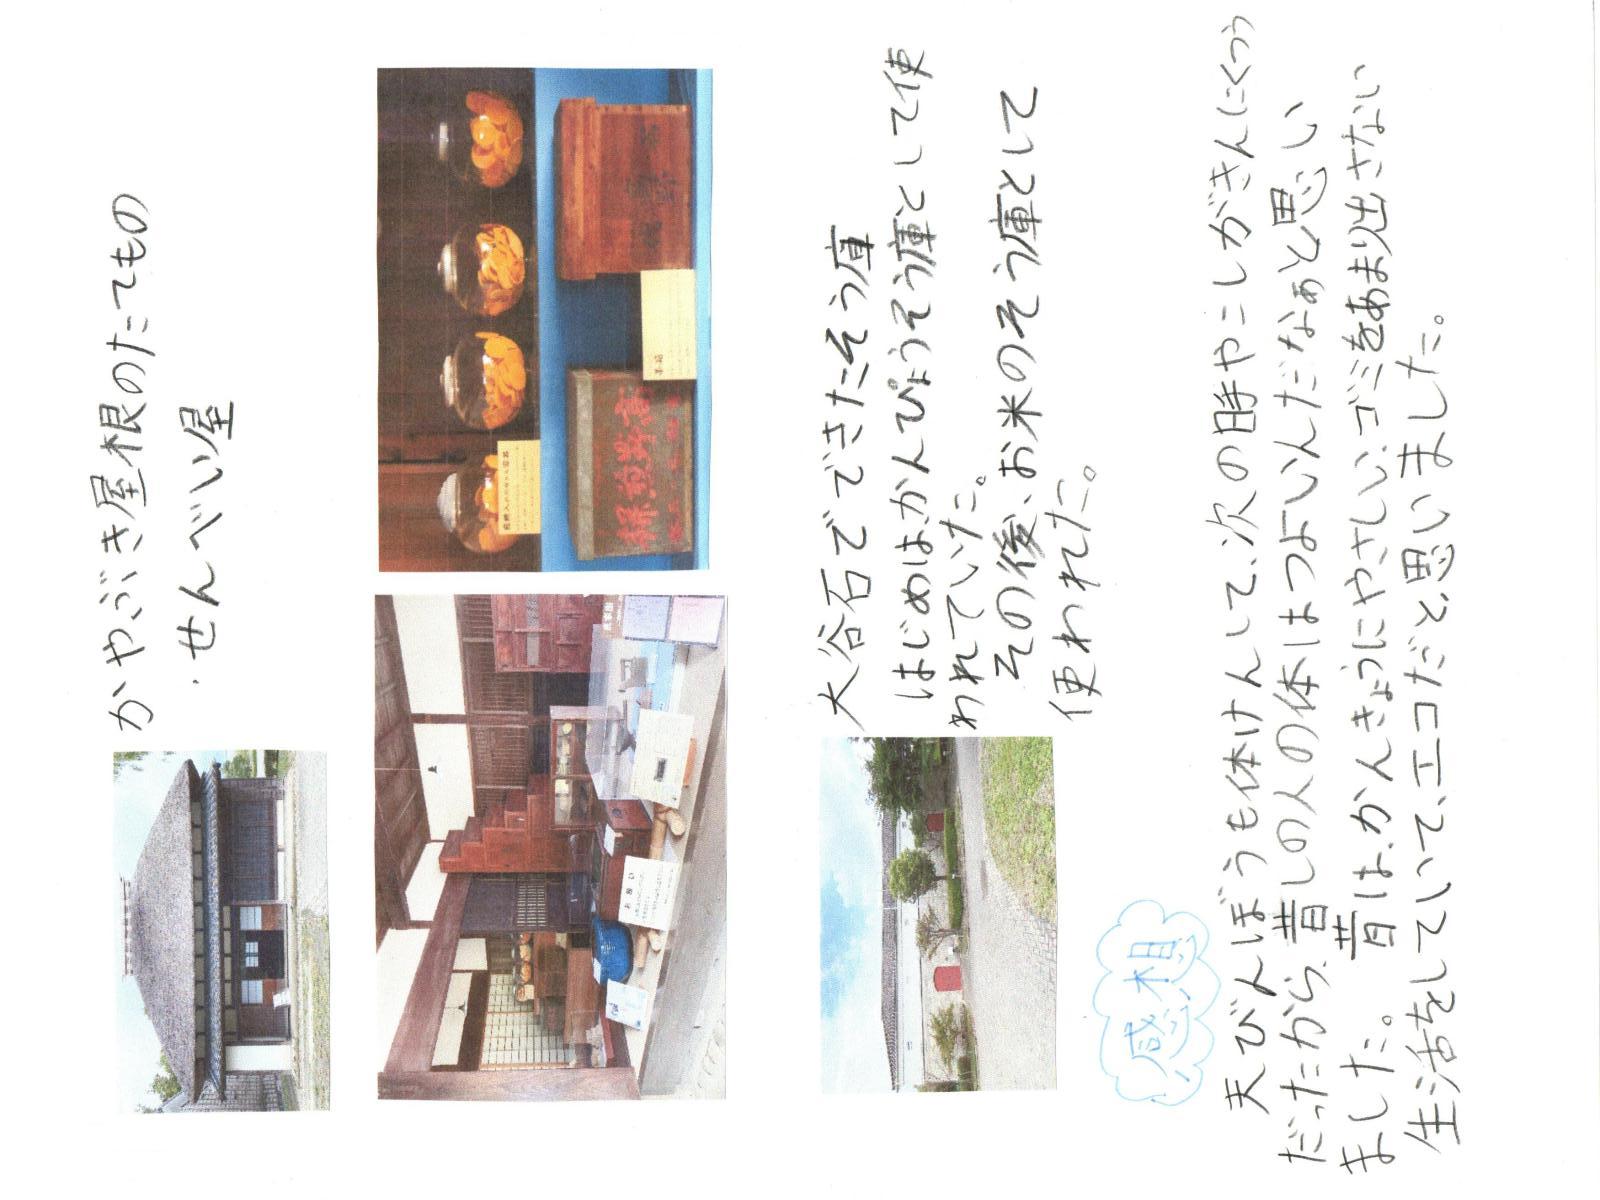 かやぶき屋根のたてもの
・せんべい屋
お願い
菓子箱
大谷石でできたそう庫
はじめは、かんぴょうそう庫として使
われていた。
その後、お米のそう庫として
使われた。
感想
天びんぼうも体けんして、次の日手やこしがきんにくつう
だったから、昔しの人の体はつよいんだなぁと思い
ました。昔は、かんきょうにやさしい、ゴミをあまり出さない
生活をしていて、エコだと思いました。